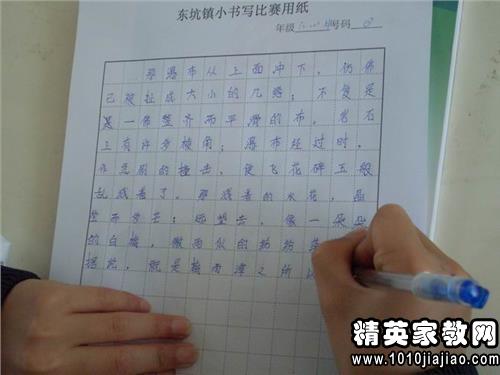 东坑镇小书写比赛用纸
年级 号码
那瀑布从上面冲下，仿佛
已被扯成大小的几绺；不复是
是一幅整齐而平滑的布。岩石
上有许多棱角；瀑布经过时，
作急剧的撞击，便飞花碎玉般
乱溅着了。那溅着的水花，晶
莹而多芒；远望去，像一朵朵
的白梅，微雨似的纷纷落
据说，就是梅雨潭之所
精英家教网
www.1010jiajiao.com